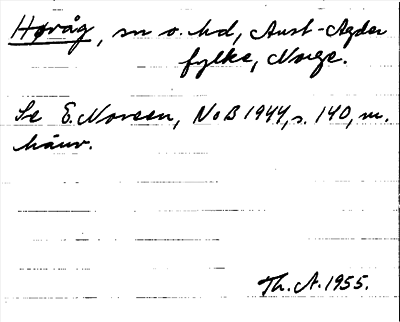 Høvåg, sn o. hd, Aust-Agder
fylke, Norge.
Se E. Noreen, NoB 1944, s. 140, m.
hänv.
Th. A. 1955.